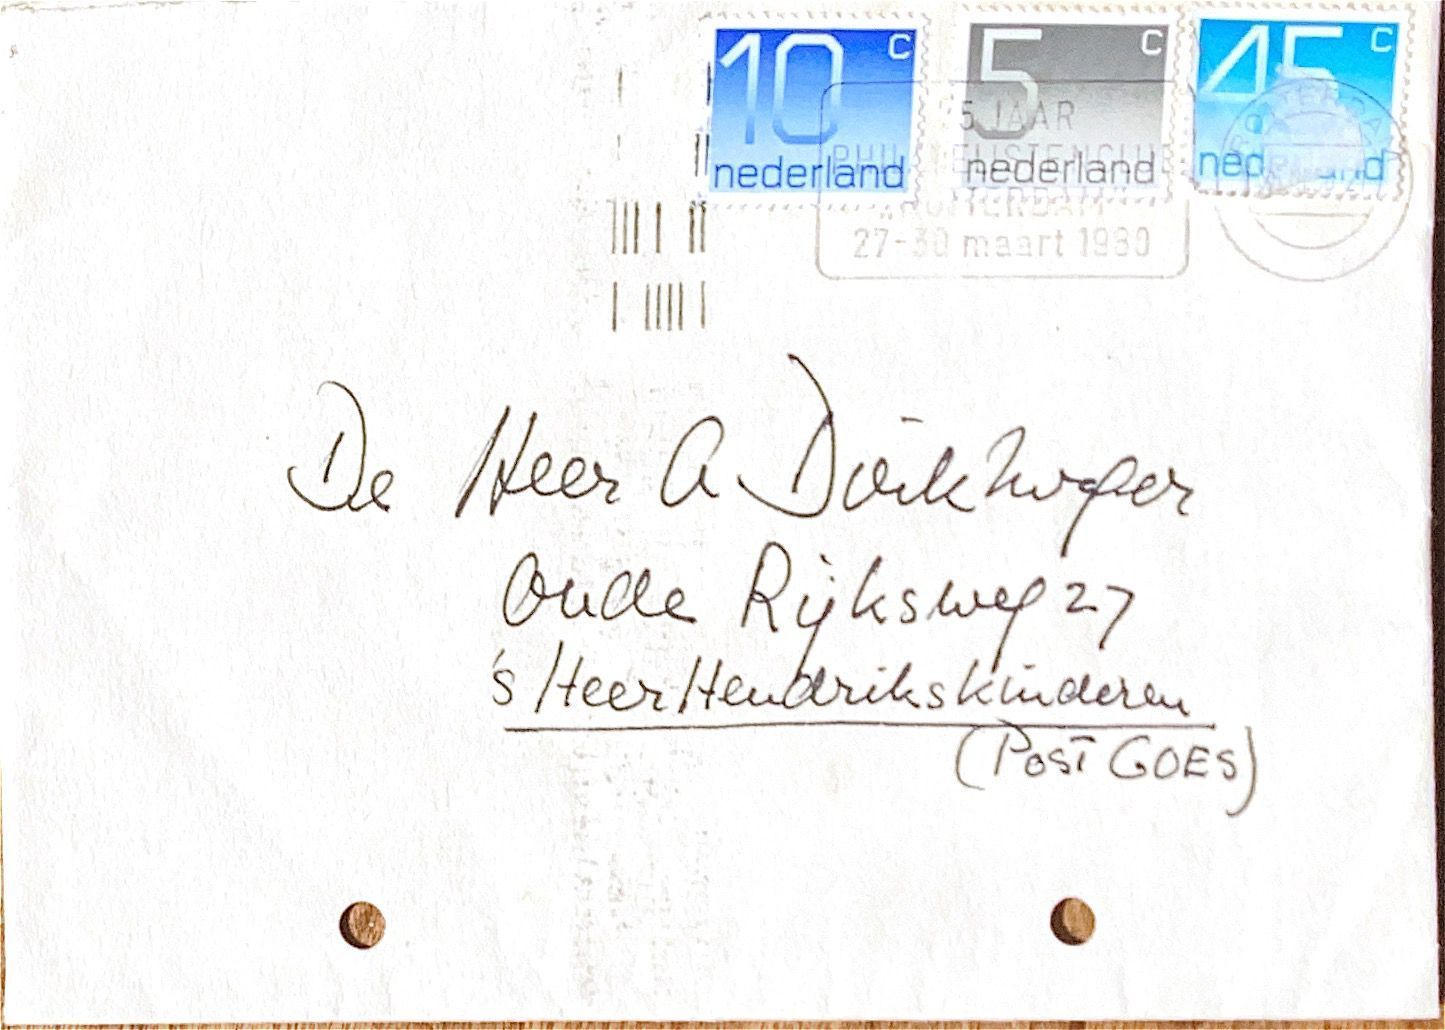 10 c
nederland
5 c
nederland
45 c
nederland
5 JAAR
ROTTERDAM
27-30 maart 1980
ROTTERDAM
De Heer A
Oude Rijksweg 27
's Heer Hendrikskinderen
(Post GOES)